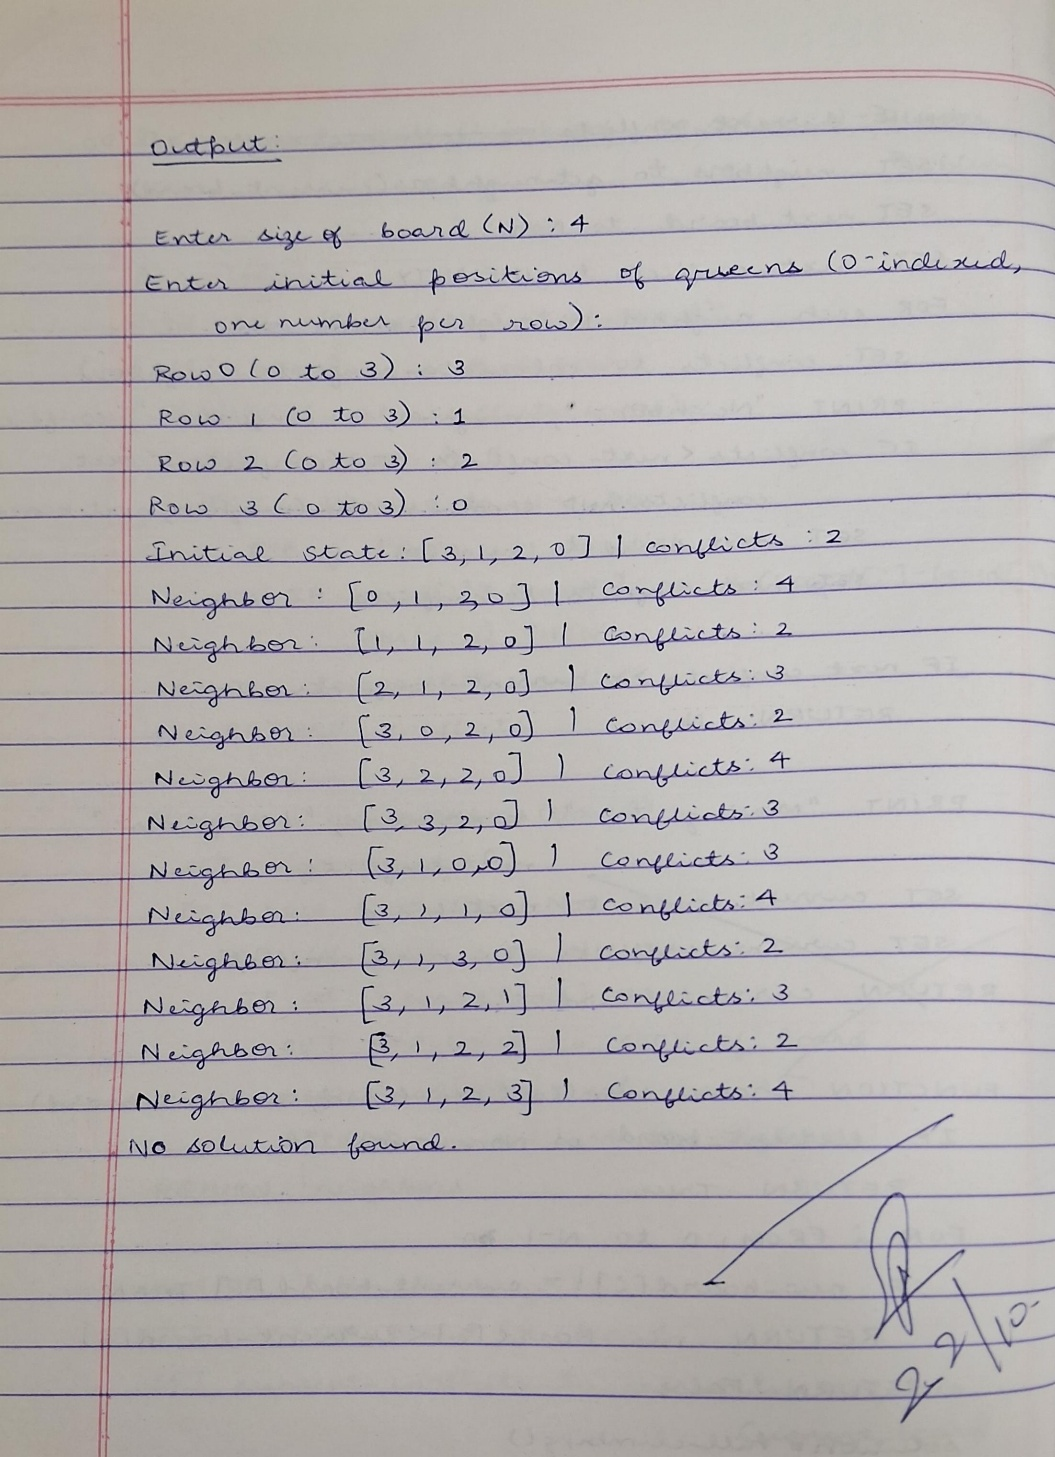 Output:
Enter size of board (N) : 4
Enter initial positions of queens (0-indexed,
one number per row):
Row 0 (0 to 3) : 3
Row 1 (0 to 3) : 1
Row 2 (0 to 3) : 2
Row 3 (0 to 3) : 0
Initial state: [3, 1, 2, 0] | conflicts : 2
Neighbor : [0, 1, 2,0] | Conflicts : 4
Neighbor: [1, 1, 2, 0] | Conflicts: 2
Neighbor: [2, 1, 2, 0] | Conflicts: 3
Neighbor: [3, 0, 2, 0] | Conflicts: 2
Neighbor: [3, 2, 2, 0] | Conflicts: 4
Neighbor: [3, 3, 2, 0] | Conflicts: 3
Neighbor: [3, 1, 0,0] | Conflicts: 3
Neighbor: [3, 1, 1, 0] | Conflicts: 4
Neighbor: [3, 1, 3, 0] | Conflicts: 2
Neighbor: [3, 1, 2, 1] | Conflicts: 3
Neighbor: [3, 1, 2, 2] | Conflicts: 2
Neighbor: [3, 1, 2, 3] | Conflicts: 4
No solution found.